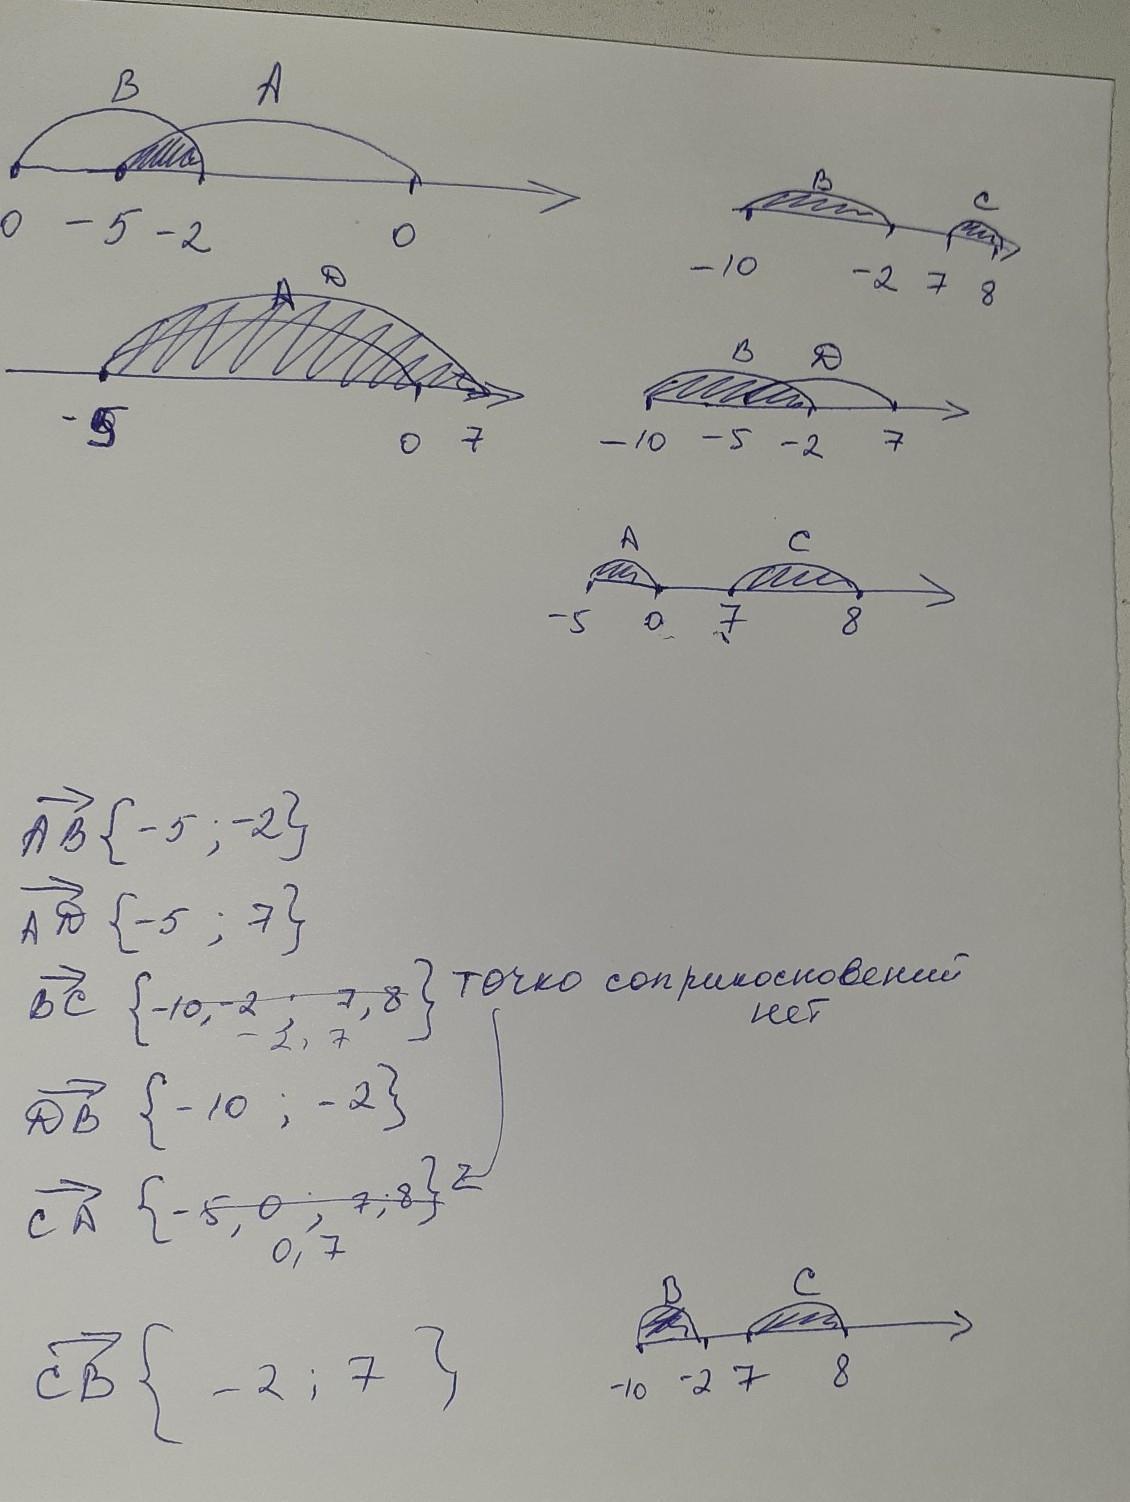 B A
0 -5 -2 0
B C
-10 -2 7 8
A D
-5 0 7
B D
-10 -5 -2 7
A C
-5 0 7 8
AB {-5 ; -2}
AD {-5 ; 7}
BC {-10, -2 ; 7, 8} точко соприкосновений
нет
-2, 7
DB {-10 ; -2}
CA {-5, 0 ; 7; 8}
0, 7
B C
-10 -2 7 8
CB { -2 ; 7 }